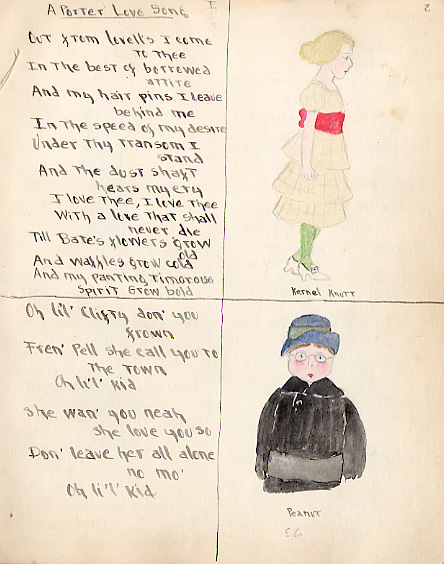 A Porter Love Song
I
Out from Lovells I come
To Thee
In the best of borrowed
attire
And my hair pins I leave
behind me
In the speed of my desire
Under thy transom I
stand
And the dust shaft
hears my cry
I love thee, I love thee
With a love that shall
never die
Till Bate's flowers grow
old
And waffles grow cold
And my panting timorous
spirit grow bold
Oh lil' Clifty don' you
frown
Fren' Pell she call you to
the town
Oh li'l' kid
She wan' you neah
she love you so
Don' leave her all alone
no mo'
Oh li'l' kid
2
Kernel Knutt
Peanut
E.G.